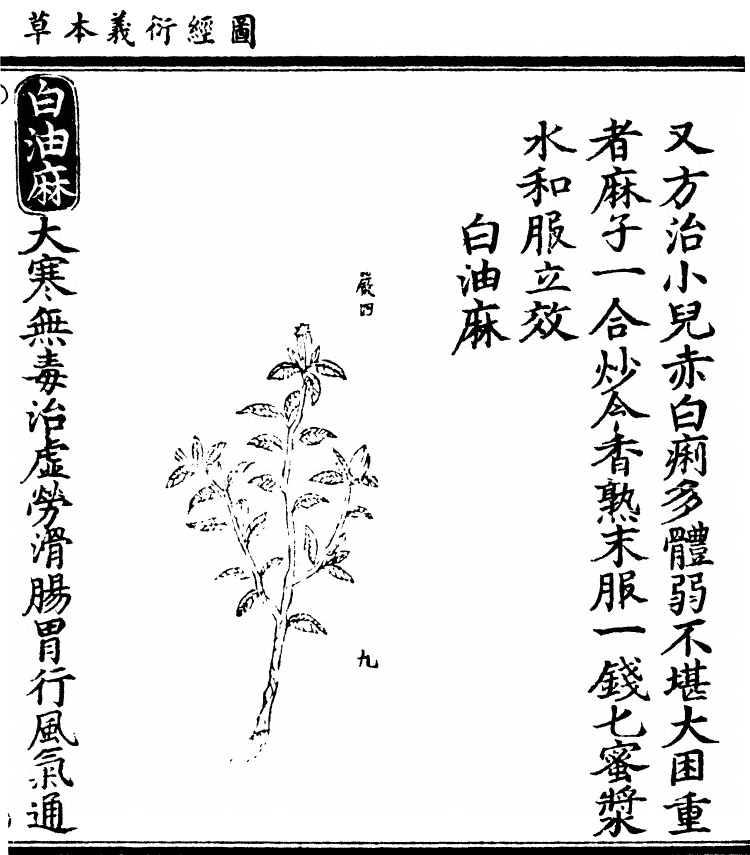 圖經衍義本草
又方治小兒赤白痢多體弱不堪大困重
者麻子一合炒令香熟末服一錢匕蜜漿
水和服立效
白油麻
嚴四
九
白油麻大寒無毒治虛勞滑腸胃行風氣通